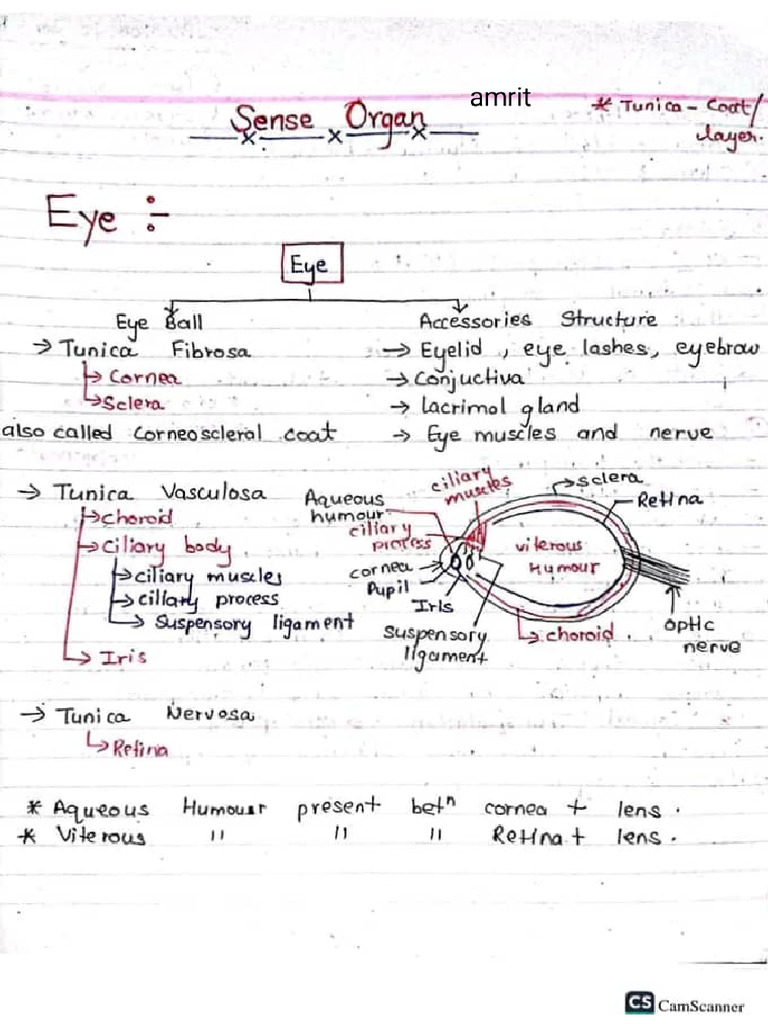 amrit
Sense Organ
* Tunica - Coat/
layer.
Eye :-
Eye
Eye Ball
→ Tunica Fibrosa
↳ Cornea
↳ Sclera
also called Corneoscleral coat
Accessories Structure
→ Eyelid, eye lashes, eyebrow
→ Conjuctiva
→ Lacrimal gland
→ Eye muscles and nerve
→ Tunica Vasculosa
↳ choroid
↳ Ciliary body
↳ ciliary muscles
↳ ciliary process
↳ Suspensory ligament
↳ Iris
ciliary
muscles
Aqueous
humour
ciliary
process
cornea
Pupil
Iris
Suspensory
ligament
sclera
Retina
viterous
Humour
choroid.
optic
nerve
→ Tunica Nervosa
↳ Retina
* Aqueous Humour present betⁿ cornea + lens.
* Viterous " " " Retina + lens.
CS CamScanner